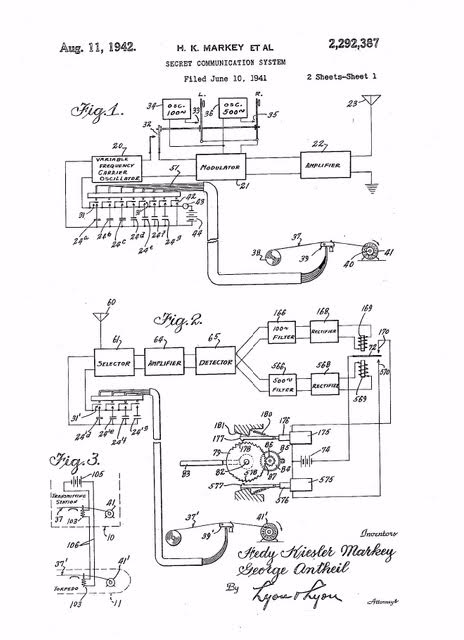 Aug. 11, 1942.
H. K. MARKEY ET AL
2,292,387
SECRET COMMUNICATION SYSTEM
Filed June 10, 1941
2 Sheets-Sheet 1
Fig. 1.
L.
R.
34
OSC. 100~
33
36
OSC. 500~
35
23
32
20
VARIABLE FREQUENCY CARRIER OSCILLATOR
51
MODULATOR
21
22
AMPLIFIER
31
42
43
44
24a
24b
24c
24d
24e
24f
24g
37
38
39
40
41
60
Fig. 2.
61
SELECTOR
64
AMPLIFIER
65
DETECTOR
166
100~ FILTER
168
RECTIFIER
169
170
72
566
500~ FILTER
568
RECTIFIER
569
570
31'
24'd
24'e
24'f
24'g
181
180
176
175
177
79
178
86
85
84
74
83
82
578
87
577
576
575
Fig. 3.
105
TRANSMITTING STATION
41
37
103
10
106
37'
41'
TORPEDO
103
11
37'
39'
41'
Inventors
Hedy Kiesler Markey
George Antheil
By Lyon & Lyon
Attorneys